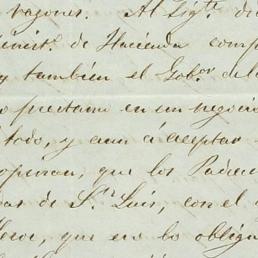 vagones. Al Sigte. di
inist. de Hacienda comp
y tambien el Gobor. de l
prestamo en un negocio
todo, y aun á aceptar
operian, que los Padres
as de Sn. Luis, con el
que en lo obliga